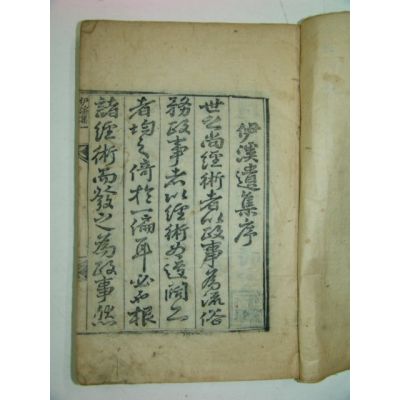 伊溪遺集序
世之尚經術者以政事爲流俗
務政事者以經術爲迂闊是二
者均之倚於一偏耳必也根
諸經術而發之爲政事然